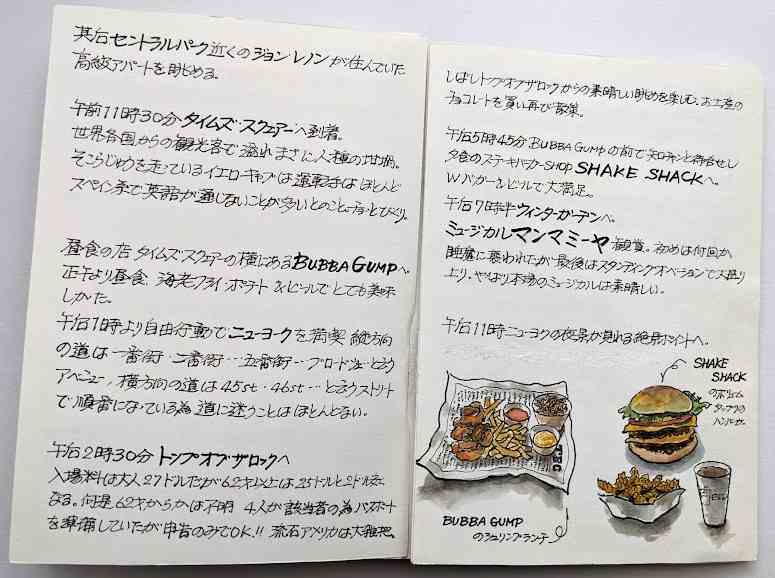 其后セントラルパーク近くのジョンレノンが住んでいた
高級アパートを眺める。
午前11時30分タイムズ・スクェアーへ到着。
世界各国からの観光客で溢れまさに人種の坩堝。
そこらじゅうを走っているイエローキャブは運転手はほとんど
スペイン系で英語が通じないことが多いとのことちょっとびっくり。
昼食の店タイムズ・スクェアーの横にあるBUBBA GUMPへ。
正午より昼食、海老フライ・ポテト&ビールでとても美味
しかった。
午后1時より自由行動でニューヨークを満喫 縦方向
の道は一番街・二番街…五番街…ブロードウェーと言う
アベニュー、横方向の道は45st・46st…と言うストリート
で順番になっている為道に迷うことはほとんどない。
午后2時30分 トップオブザロックへ
入場料は大人27ドルだが62才以上は25ドルと2ドル安く
なる。何是62才からかは不明 4人が該当者の為パスポート
を準備していたが申告のみでOK!! 流石アメリカは大雑把。
しばしトップオブザロックからの素晴しい眺めを楽しむ。お土産の
チョコレートを買い再び散策。
午后5時45分BUBBA GUMPの前で待合せし
夕食のステーキバーガーSHOP SHAKE SHACKへ。
Wバーガー&ビールで大満足。
午后7時半ウィンターガーデンへ。
ミュージカルマンマミーヤ観賞。初めは何回か
睡魔に襲われたが最後はスタンディングオベーションで大盛り
上り。やはり本場のミュージカルは素晴しい。
午后11時ニューヨークの夜景が見れる絶景ポイントへ。
SHAKE
SHACK
のボリューム
タップリの
ハンバーガー
BUBBA GUMP
のシュリンプランチ